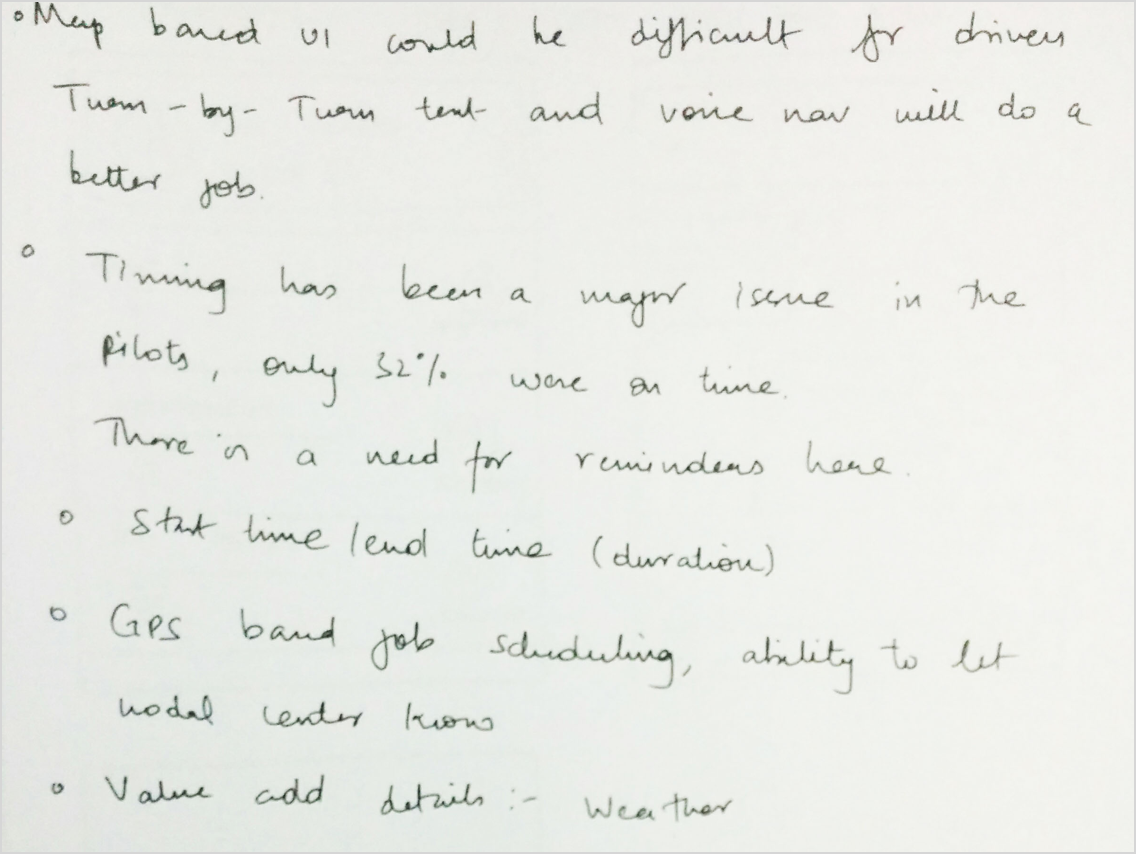 • Map based UI could be difficult for drivers
Turn-by-Turn text and voice nav will do a
better job.
• Timing has been a major issue in the
pilots, only 32% were on time.
There is a need for reminders here.
• Start time / end time (duration)
• GPS based job scheduling, ability to let
nodal center know
• Value add details :- Weather